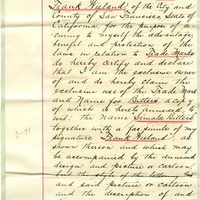 Frank Harland, of the City and
County of San Francisco, State of
California for the purpose of se-
curing to myself the advantage,
benefit and protection of the
Laws in relation to Trade Marks
do hereby certify and declare
that I am the exclusive owner
of and do hereby claim the
exclusive use of the Trade Mark
and Name for Bitters a copy
of which is hereto annexed to
wit: The Name Female Bitters
together with a facsimile of my
signature "Frank " as
shown hereon and which may
be accompanied by the annexed
design and picture or cartoon,
but the style of the letters
and said picture or cartoon
and the description of and